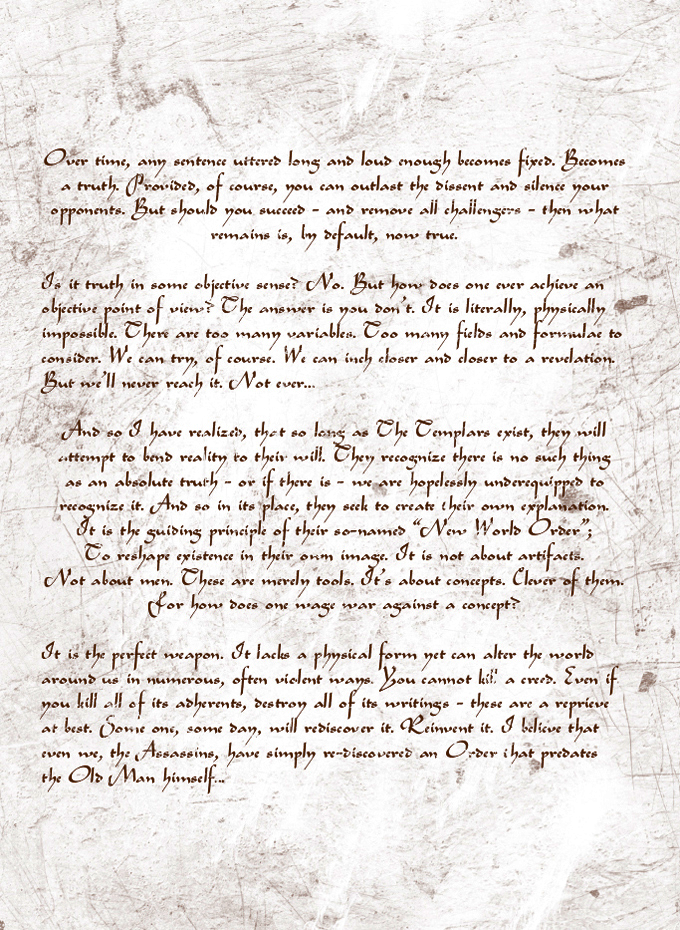 Over time, any sentence uttered long and loud enough becomes fixed. Becomes
a truth. Provided, of course, you can outlast the dissent and silence your
opponents. But should you succeed - and remove all challengers - then what
remains is, by default, now true.
Is it truth in some objective sense? No. But how does one ever achieve an
objective point of view? The answer is you don't. It is literally, physically
impossible. There are too many variables. Too many fields and formulae to
consider. We can try, of course. We can inch closer and closer to a revelation.
But we'll never reach it. Not ever...
And so I have realized, that so long as The Templars exist, they will
attempt to bend reality to their will. They recognize there is no such thing
as an absolute truth - or if there is - we are hopelessly underequipped to
recognize it. And so in its place, they seek to create their own explanation.
It is the guiding principle of their so-named "New World Order";
To reshape existence in their own image. It is not about artifacts.
Not about men. These are merely tools. It's about concepts. Clever of them.
For how does one wage war against a concept?
It is the perfect weapon. It lacks a physical form yet can alter the world
around us in numerous, often violent ways. You cannot kill a creed. Even if
you kill all of its adherents, destroy all of its writings - these are a reprieve
at best. Some one, some day, will rediscover it. Reinvent it. I believe that
even we, the Assassins, have simply re-discovered an Order that predates
the Old Man himself...